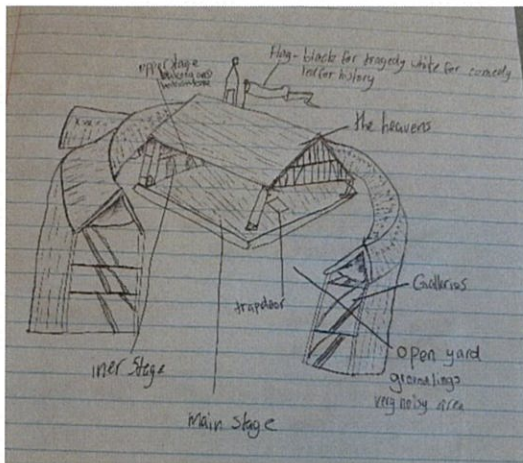 upper stage
balcony and
Flag - black for tragedy white for comedy
red for history
the heavens
trapdoor
Galleries
iner stage
open yard
groundlings
very noisy area
Main stage